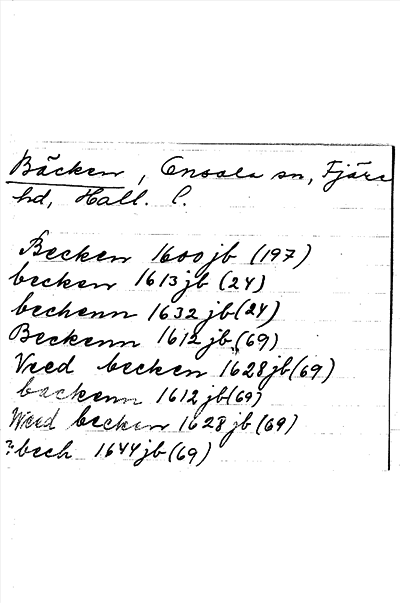 Bäcken, Onsala sn, Fjäre
hd, Hall. l.
Becken 1600 jb (197)
becken 1613 jb (24)
bechenn 1632 jb (24)
Beckenn 1612 jb (69)
Veed becken 1628 jb (69)
backenn 1612 jb (69)
Weed becken 1628 jb (69)
? bech 1644 jb (69)